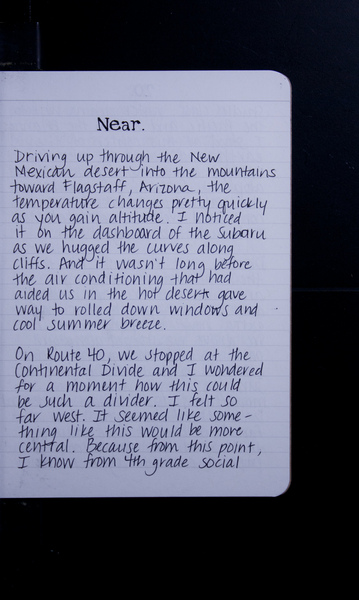 Near.
Driving up through the New
Mexican desert into the mountains
toward Flagstaff, Arizona, the
temperature changes pretty quickly
as you gain altitude. I noticed
it on the dashboard of the Subaru
as we hugged the curves along
cliffs. And it wasn't long before
the air conditioning that had
aided us in the hot desert gave
way to rolled down windows and
cool summer breeze.
On Route 40, we stopped at the
Continental Divide and I wondered
for a moment how this could
be such a divider. I felt so
far west. It seemed like some-
thing like this would be more
central. Because from this point,
I know from 4th grade social